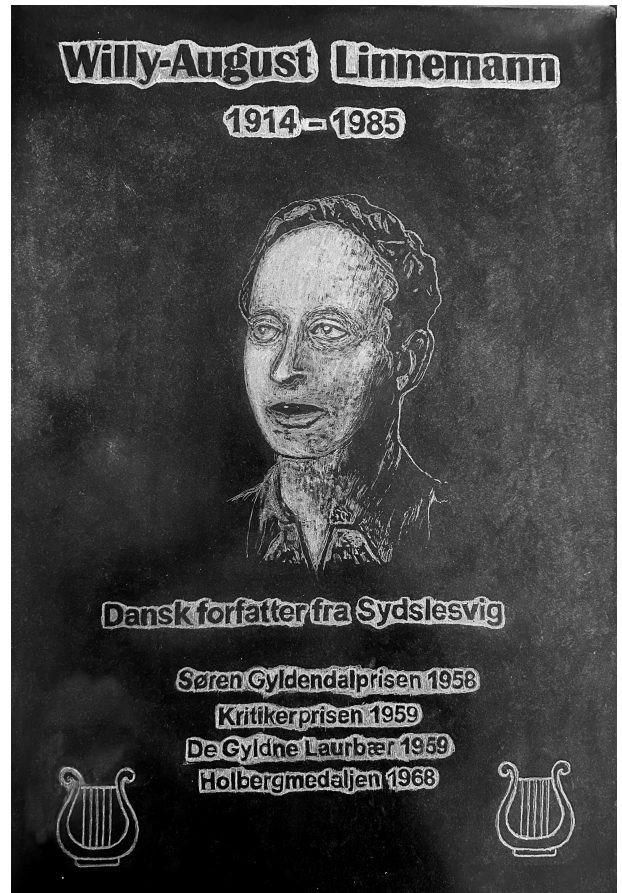 Willy-August Linnemann
1914 – 1985
Dansk forfatter fra Sydslesvig
Søren Gyldendalprisen 1958
Kritikerprisen 1959
De Gyldne Laurbær 1959
Holbergmedaljen 1968